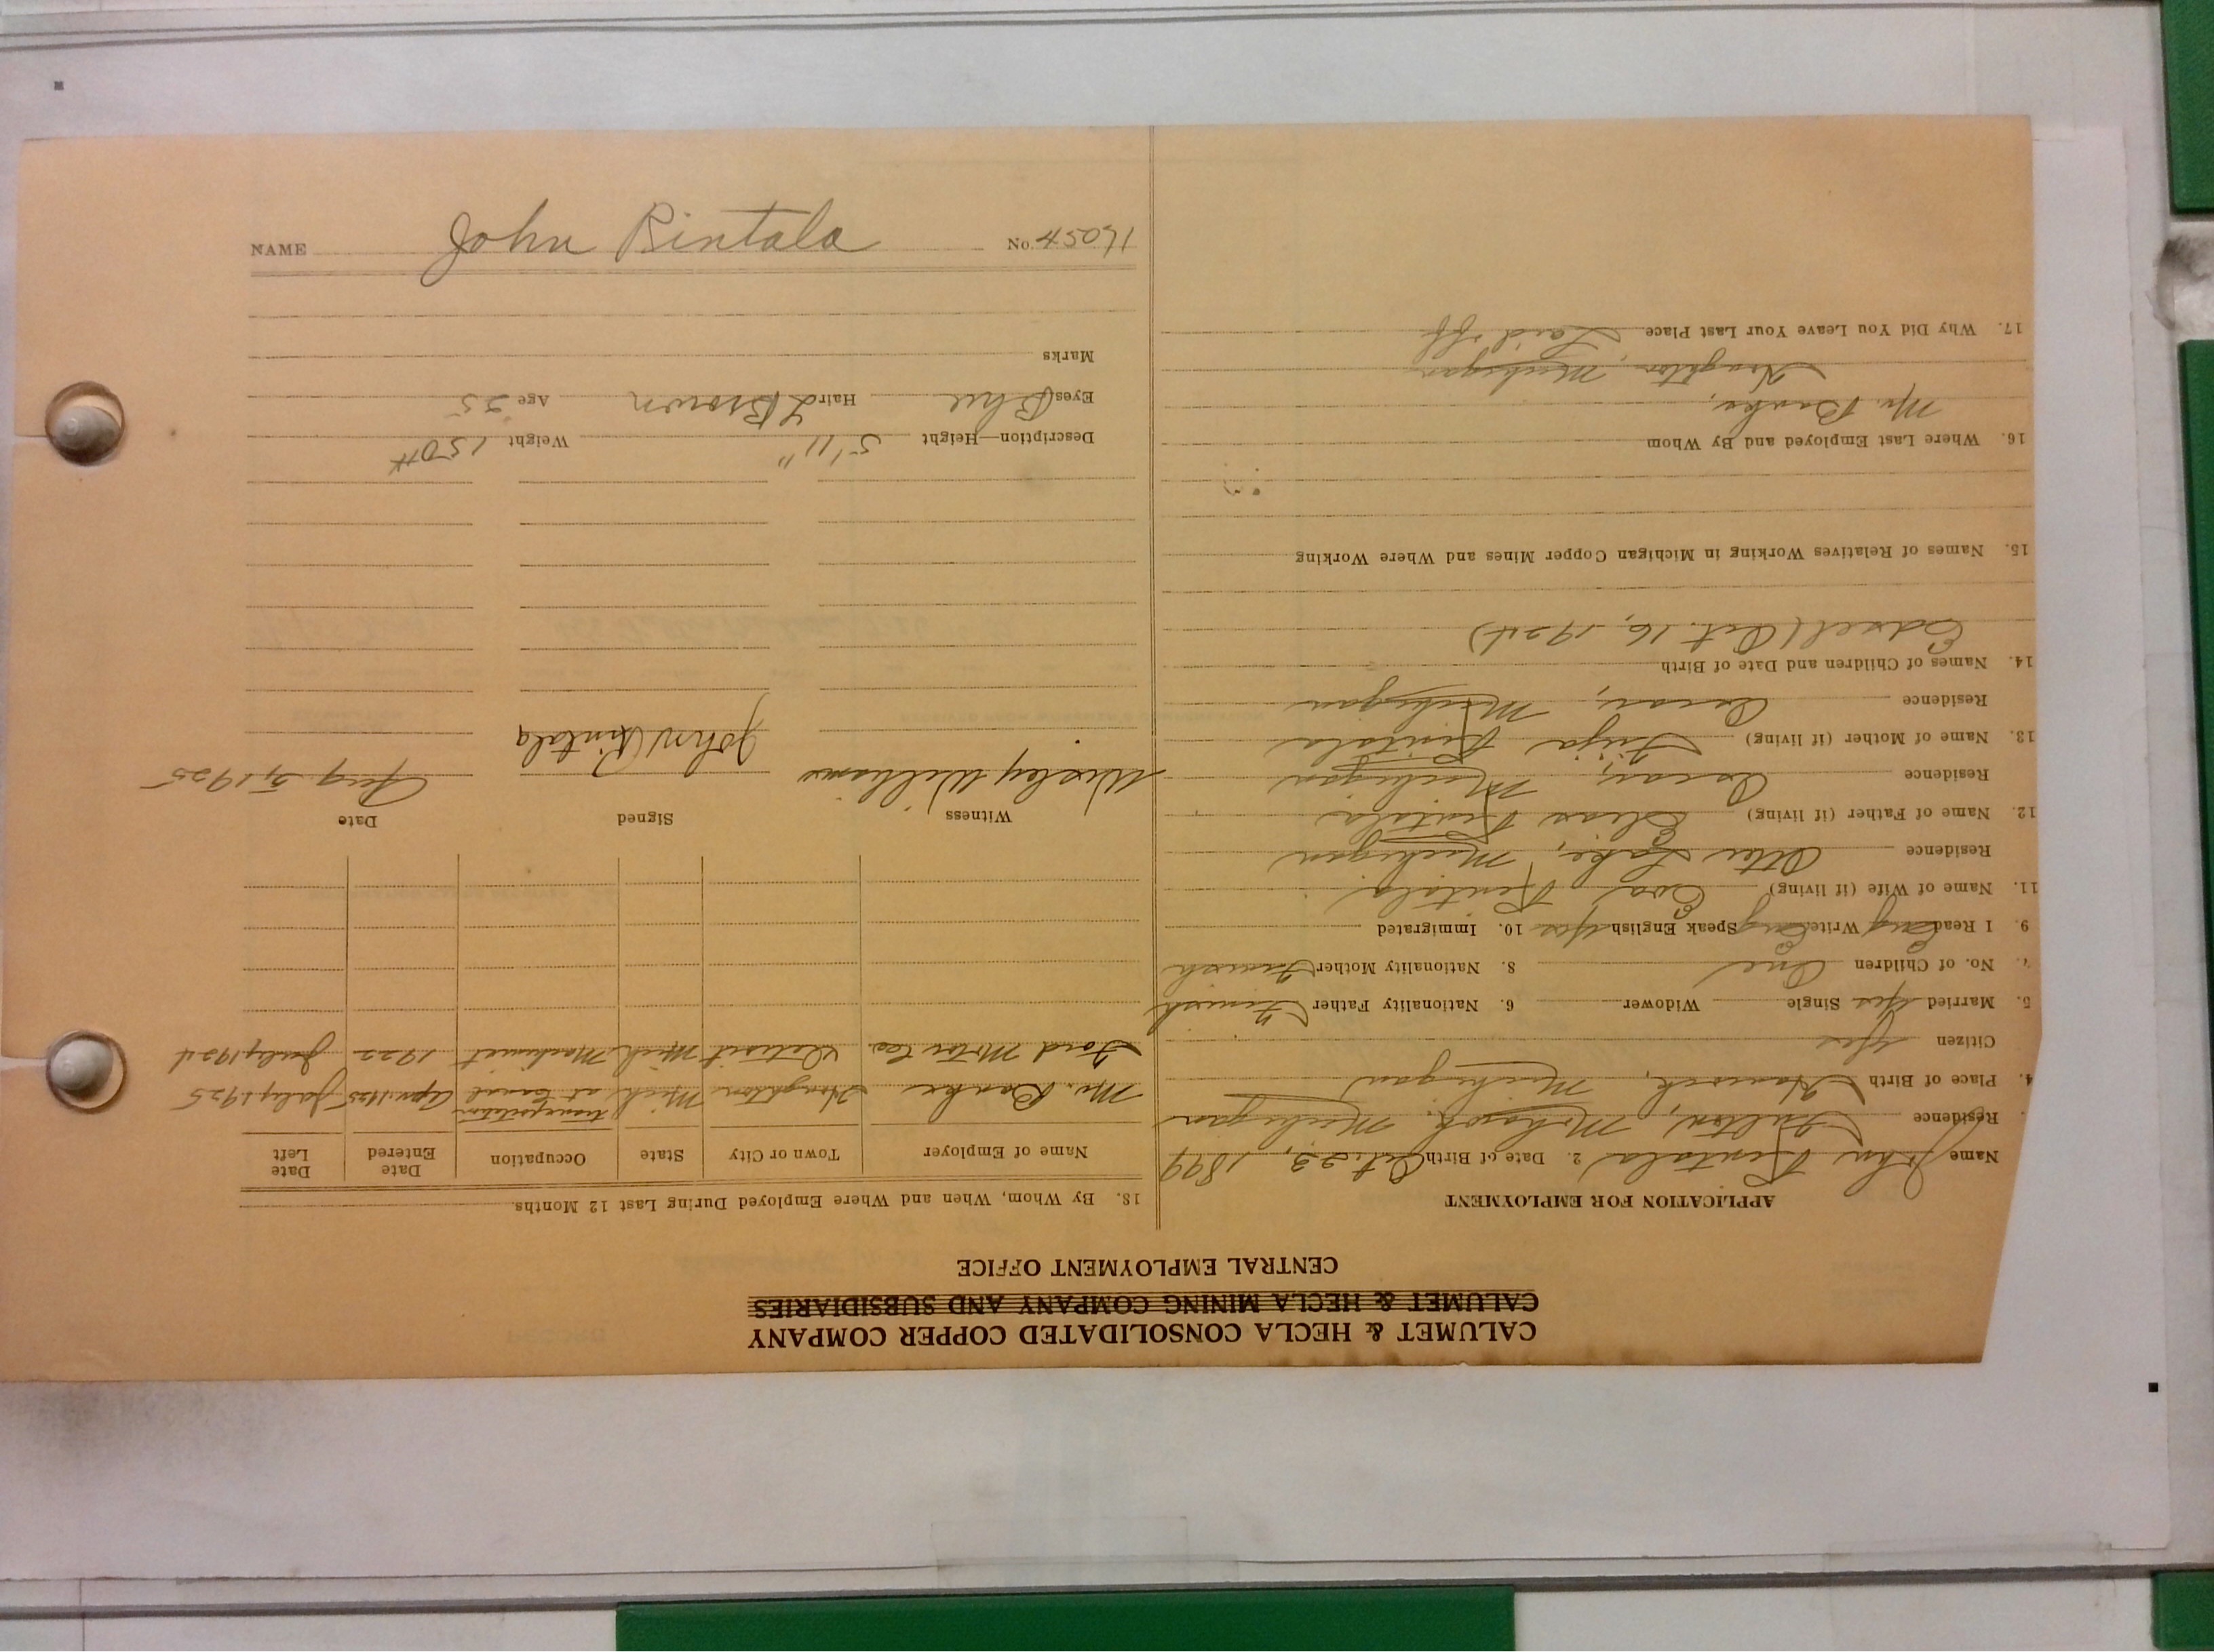 CALUMET & HECLA CONSOLIDATED COPPER COMPANY
CALUMET & HECLA MINING COMPANY AND SUBSIDIARIES
CENTRAL EMPLOYMENT OFFICE
APPLICATION FOR EMPLOYMENT
Name John Rintala 2. Date of Birth Oct. 23, 1899
Residence Fulton, Mohawk, Michigan
4. Place of Birth Hancock, Michigan
Citizen Yes
5. Married Yes Single Widower 6. Nationality Father Finnish
No. of Children One 8. Nationality Mother Finnish
9. I Read Eng Write Eng Speak English Yes 10. Immigrated
11. Name of Wife (if living) Eva Rintala
Residence Otter Lake, Michigan
12. Name of Father (if living) Elias Rintala
Residence Michigan
13. Name of Mother (if living) Rintala
Residence Michigan
14. Names of Children and Date of Birth
Edsel (Oct. 16, 1924)
15. Names of Relatives Working in Michigan Copper Mines and Where Working
16. Where Last Employed and By Whom
Mr. Banke,
Houghton, Michigan
17. Why Did You Leave Your Last Place Laid off
18. By Whom, When and Where Employed During Last 12 Months.
Name of Employer Town or City State Occupation Date Entered Date Left
Mr. Banke Houghton Mich at Canal Apr. 1925 July 1925
Ford Motor Co. Detroit Mich Machinist 1922 July 1924
Witness Signed Date
Wesley Williams John Rintala Aug 5, 1925
Description—Height 5' 11" Weight 150#
Eyes Blue Hair L Brown Age 25
Marks
NAME John Rintala No. 45051